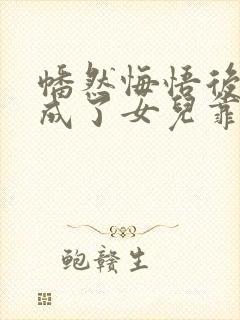 幡然悔悟後
成了女兒靠
鲍赣生